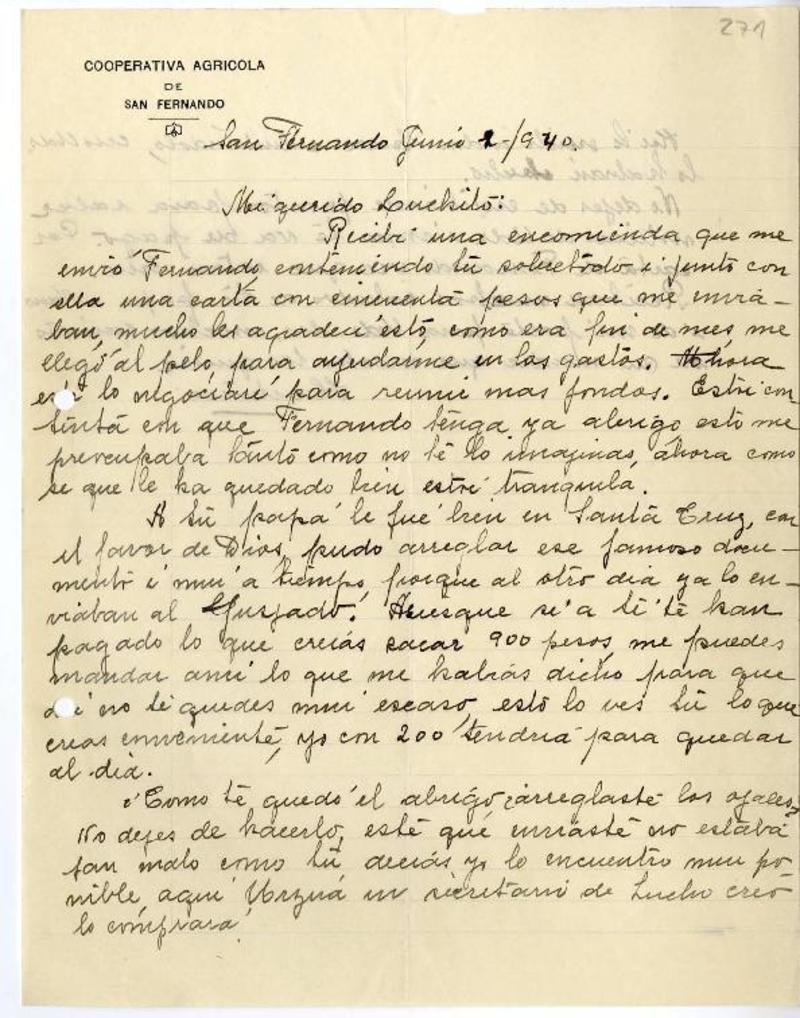 271
COOPERATIVA AGRICOLA
DE
SAN FERNANDO
San Fernando Junio 2-/940.
Mi querido Luchito:
Recibí una encomienda que me
envió Fernando, conteniendo tú sobretodo i junto con
ella una carta con cincuenta pesos que me envia-
ban, mucho les agradecí esto, como era fin de mes, me
llegó al pelo, para ayudarme en los gastos. Ahora
lo negociaré para reunir mas fondos. Estoi con
tenta con que Fernando tenga ya abrigo esto me
preocupaba tanto como no te lo imajinas, ahora como
se que le ha quedado bien estoi tranquila.
A tú papá le fué bien en Santa Cruz, con
el favor de Dios, pudo arreglar ese famoso docu-
mento i mui a tiempo, porque al otro dia ya lo en-
viaban al Juzgado. Aunque si a ti te han
pagado lo que creías sacar 900 pesos, me puedes
mandar lo que me habías dicho para que
no te quedes mui escaso, esto lo ves tú lo que
creas conveniente, yo con 200 tendría para quedar
al dia.
¿Como te quedó el abrigo, arreglaste los ojales?
No dejes de hacerlo, este que enviaste no estaba
tan malo como tú decías yo lo encuentro mui po-
nible, aqui Urzúa un secretario de Lucho creo
lo comprara.